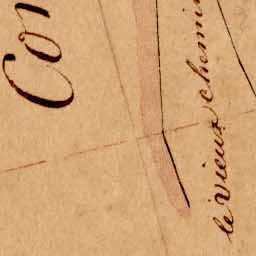 Con
le vieux chemin